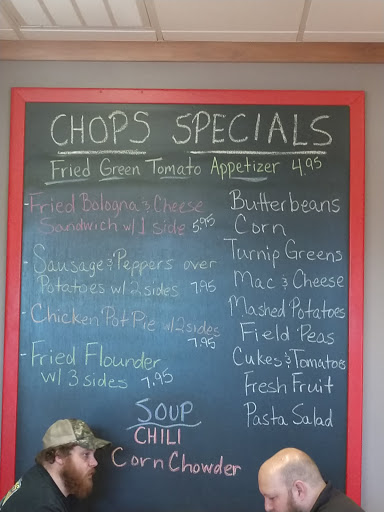 CHOPS SPECIALS
Fried Green Tomato Appetizer 4.95
- Fried Bologna & Cheese
Sandwich w/ 1 side 5.95
- Sausage & Peppers over
Potatoes w/ 2 sides 7.95
- Chicken Pot Pie w/ 2 sides
7.95
- Fried Flounder
w/ 3 sides 7.95
Butterbeans
Corn
Turnip Greens
Mac & Cheese
Mashed Potatoes
Field Peas
Cukes & Tomatoes
Fresh Fruit
Pasta Salad
SOUP
CHILI
Corn Chowder